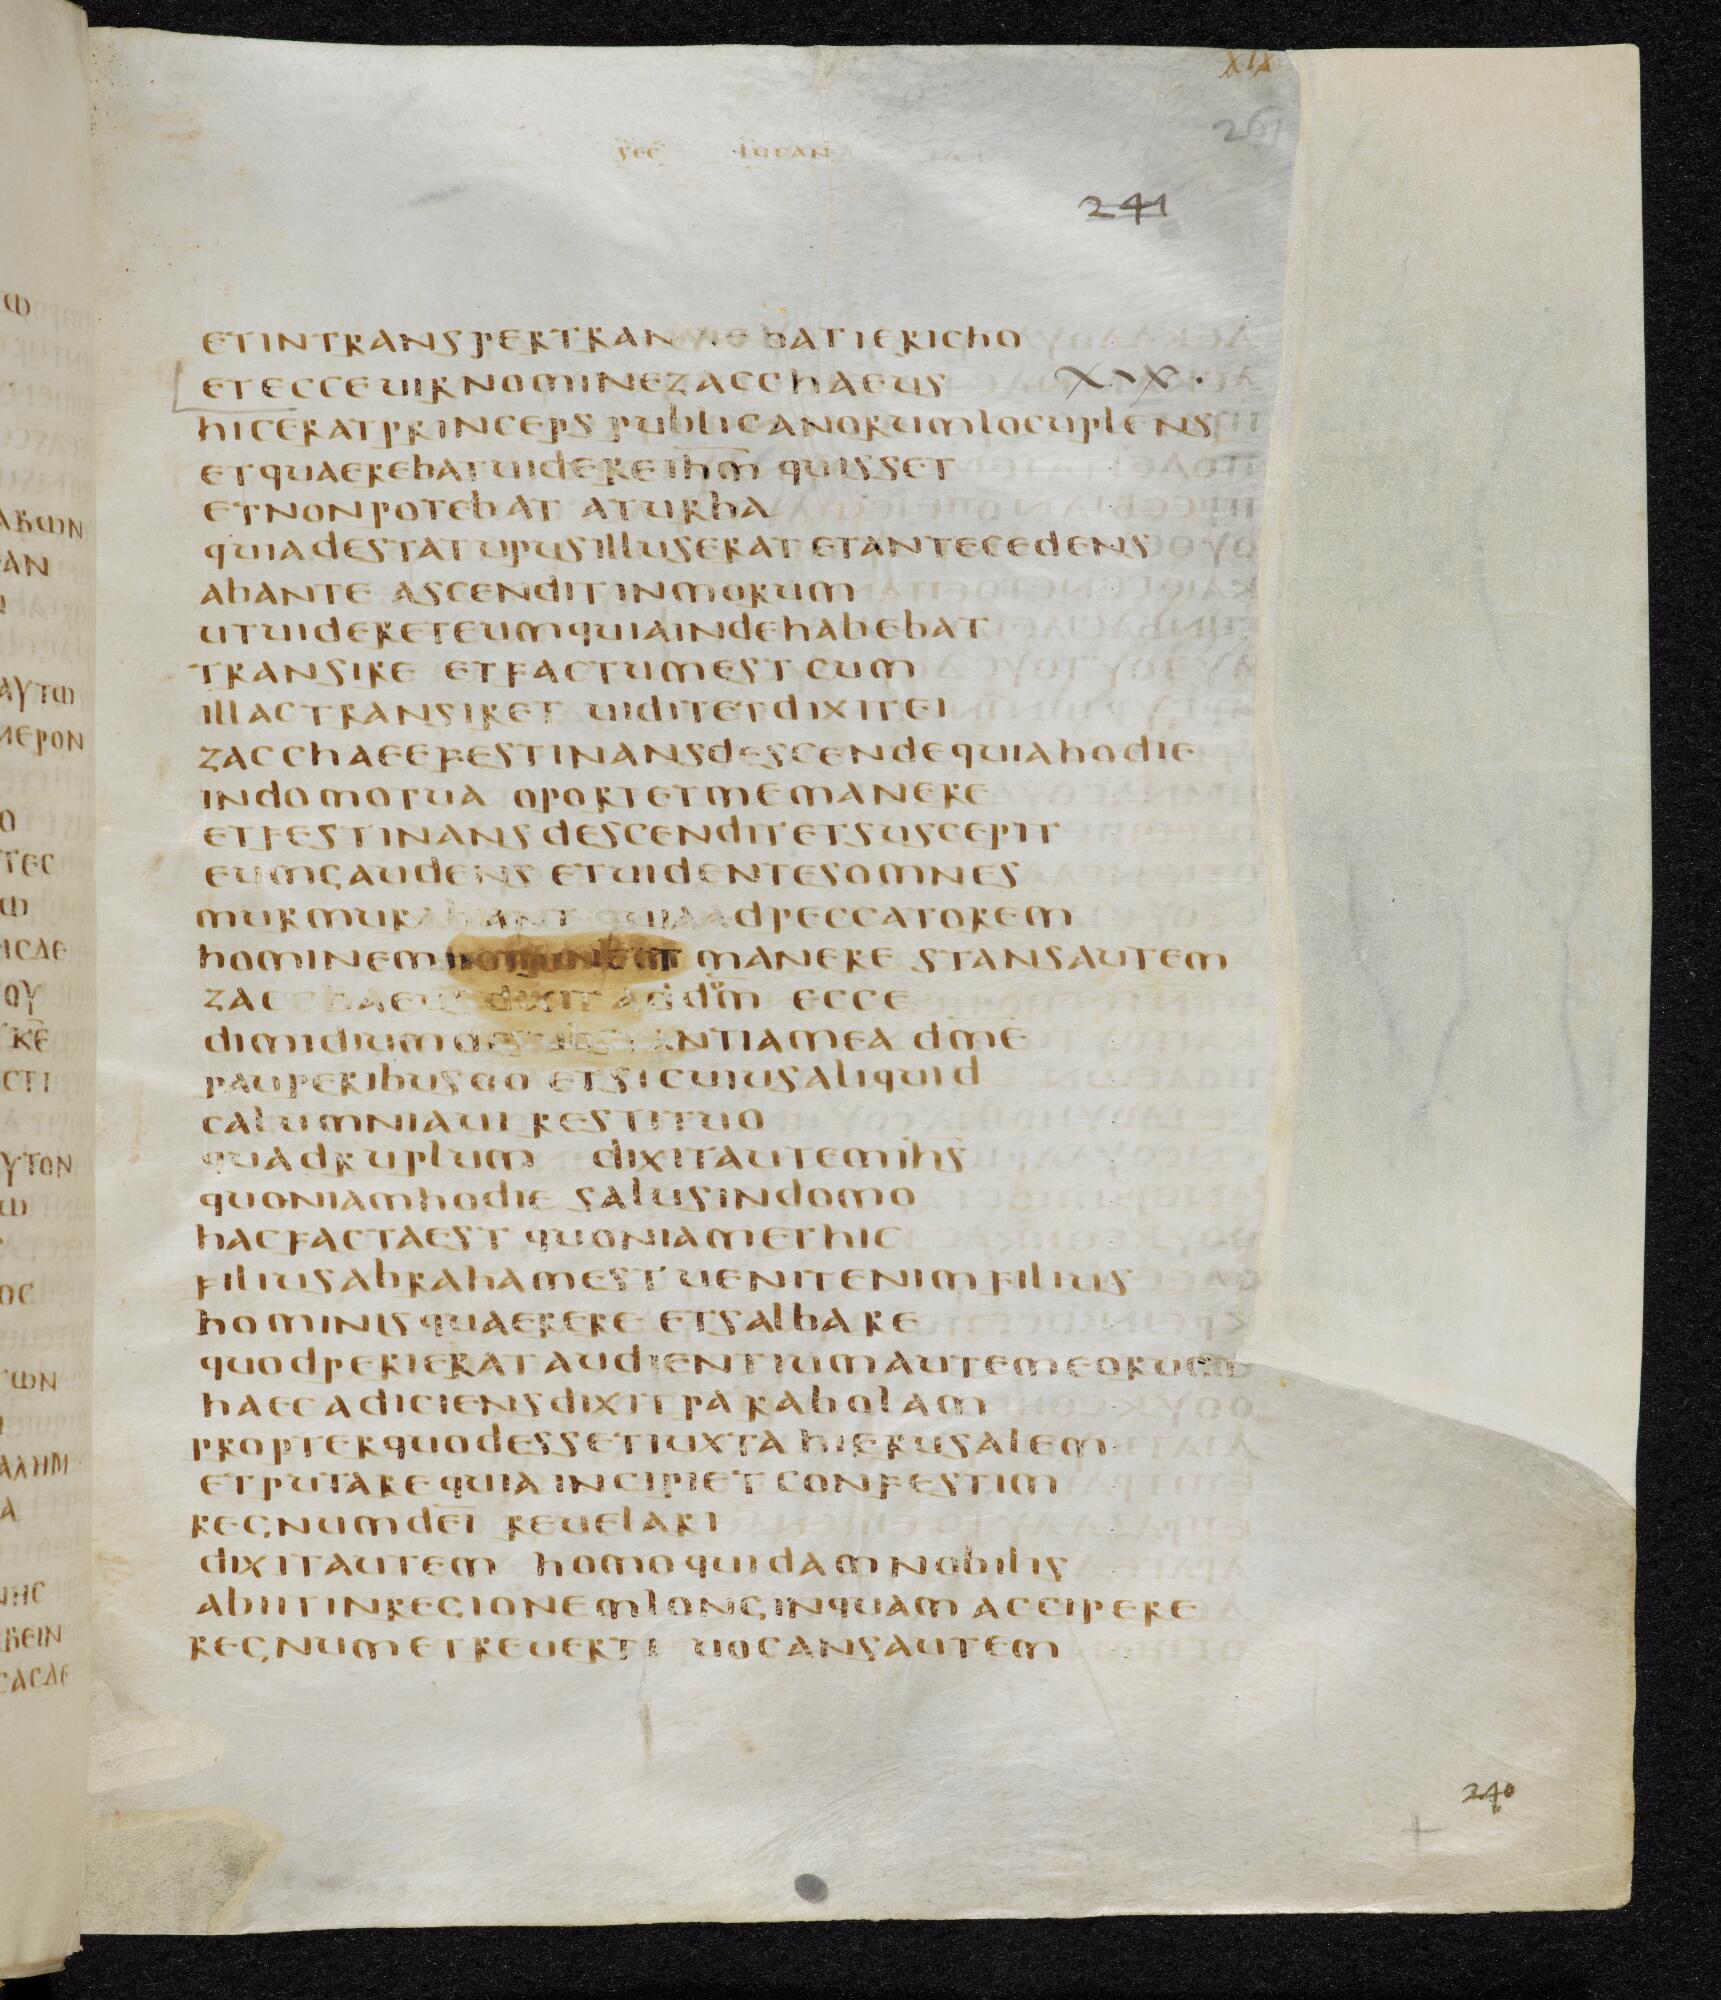 XIX
261
sec lucan
241
ETINTRANS PERTRANSIEBATIERICHO
ETECCEUIRNOMINEZACCHAEUS XIX.
HICERATPRINCEPS PUBLICANORUMLOCUPLENS
ETQUAEREBATUIDEREIHM̅ QUISSET
ETNONPOTEBAT ATURBA
QUIADESTATUPUSILLUSERAT ETANTECEDENS
ABANTE ASCENDITINMORUM
UTUIDERETEUMQUIAINDEHABEBAT
TRANSIRE ETFACTUMEST CUM
ILLACTRANSIRET UIDITETDIXITEI
ZACCHAEEFESTINANSDESCENDEQUIAHODIE
INDOMOTUA OPORTETMEMANERE
ETFESTINANS DESCENDITETSUSCEPIT
EUMGAUDENS ETUIDENTESOMNES
MURMURABANT QUIAADPECCATOREM
HOMINEM MANERE STANSAUTEM
ZACCHAEUS DIXIT AD DOM̅ ECCE
DIMIDIUMDESUBSTANTIAMEA DM̅E̅
PAUPERIBUSDO ETSICUIUSALIQUID
CALUMNIAUI RESTITUO
QUADRUPLUM DIXITAUTEMIHS̅
QUONIAMHODIE SALUSINDOMO
HACFACTAEST QUONIAMETHIC
FILIUSABRAHAMEST UENITENIMFILIUS
HOMINISQUAERERE ETSALBARE
QUODPERIERATAUDIENTIUMAUTEMEORUEM
HAECADICIENSDIXITPARABOLAM
PROPTERQUODESSETIUXTA HIERUSALEM
ETPUTAREQUIAINCIPIET CONFESTIM
REGNUMDEI̅ REUELARI
DIXITAUTEM HOMOQUIDAMNOBILIS
ABIITINREGIONEMLONGINQUAM ACCIPERE
REGNUMETREUERTI UOCANSAUTEM
240